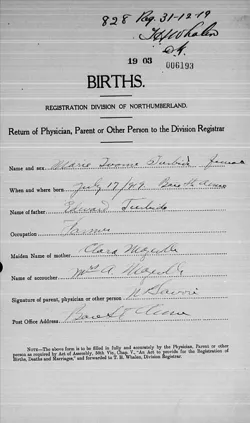 828 Reg. 31-12-19
T H Whalen
19 03
006193
BIRTHS.
REGISTRATION DIVISION OF NORTHUMBERLAND.
Return of Physician, Parent or Other Person to the Division Registrar
Name and sex Marie Yvonne female
When and where born July 17/19 Baie Ste Anne
Name of father Edward
Occupation Farmer
Maiden Name of mother Clara
Name of accoucher Mrs A
Signature of parent, physician or other person
Post Office Address Baie St Anne
NOTE.—The above form is to be filled in fully and accurately by the Physician, Parent or other
person as required by Act of Assembly, 50th Vic, Chap. V., "An Act to provide for the Registration of
Births, Deaths and Marriages," and forwarded to T. H. Whalen, Division Registrar.